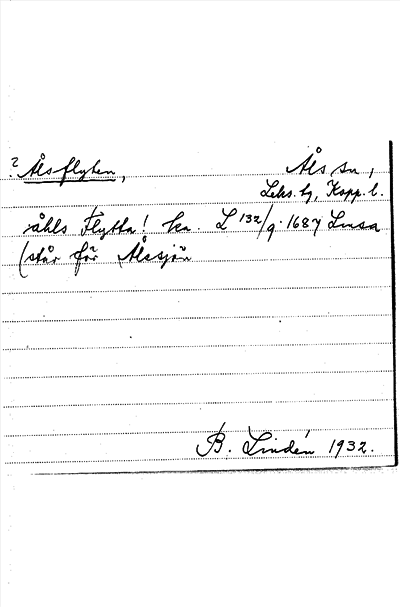 ? Ålsflyten, Åls sn,
Leks. tg, Kopp. l.
åhls Flytta! ka. L 132/9. 1687 Lusa
(står för Ålssjön
B. Lindén 1932.